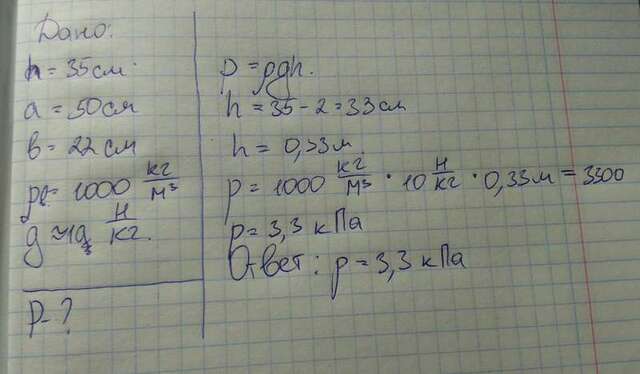 Дано:
h = 35 см
a = 50 см
в = 22 см
ρв = 1000 кг/м³
g ≈ 10 Н/кг.
P - ?
p = ρgh.
h = 35 - 2 = 33 см
h = 0,33 м.
p = 1000 кг/м³ · 10 Н/кг · 0,33 м = 3300
p = 3,3 кПа
Ответ: p = 3,3 кПа